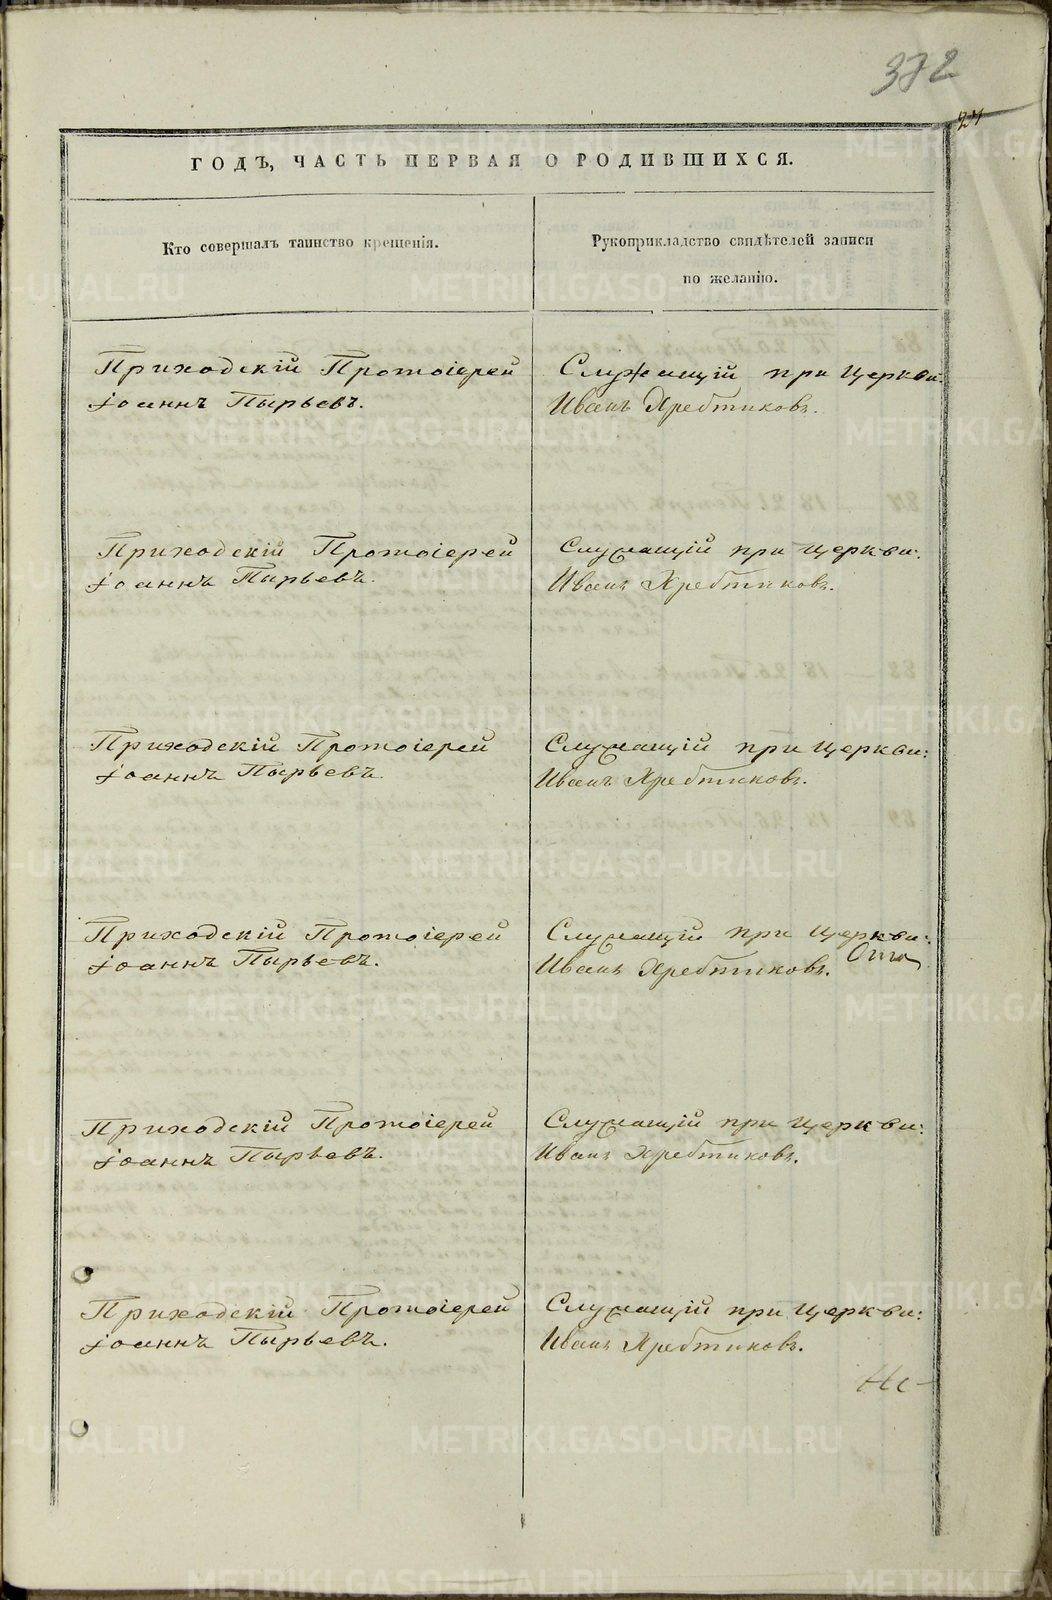 372
ГОДЪ, ЧАСТЬ ПЕРВАЯ О РОДИВШИХСЯ.
Кто совершалъ таинство крещенія.
Рукоприкладство свидѣтелей записи
по желанію.
Приходскій Протоіерей
Іоаннъ Пырьевъ.
Служащій при церкви:
Иванъ Хребтиковъ.
Приходскій Протоіерей
Іоаннъ Пырьевъ.
Служащій при церкви:
Иванъ Хребтиковъ.
Приходскій Протоіерей
Іоаннъ Пырьевъ.
Служащій при церкви:
Иванъ Хребтиковъ.
Приходскій Протоіерей
Іоаннъ Пырьевъ.
Служащій при церкви:
Иванъ Хребтиковъ.
Приходскій Протоіерей
Іоаннъ Пырьевъ.
Служащій при церкви:
Иванъ Хребтиковъ.
Приходскій Протоіерей
Іоаннъ Пырьевъ.
Служащій при церкви:
Иванъ Хребтиковъ.
METRIKI.GASO-URAL.RU